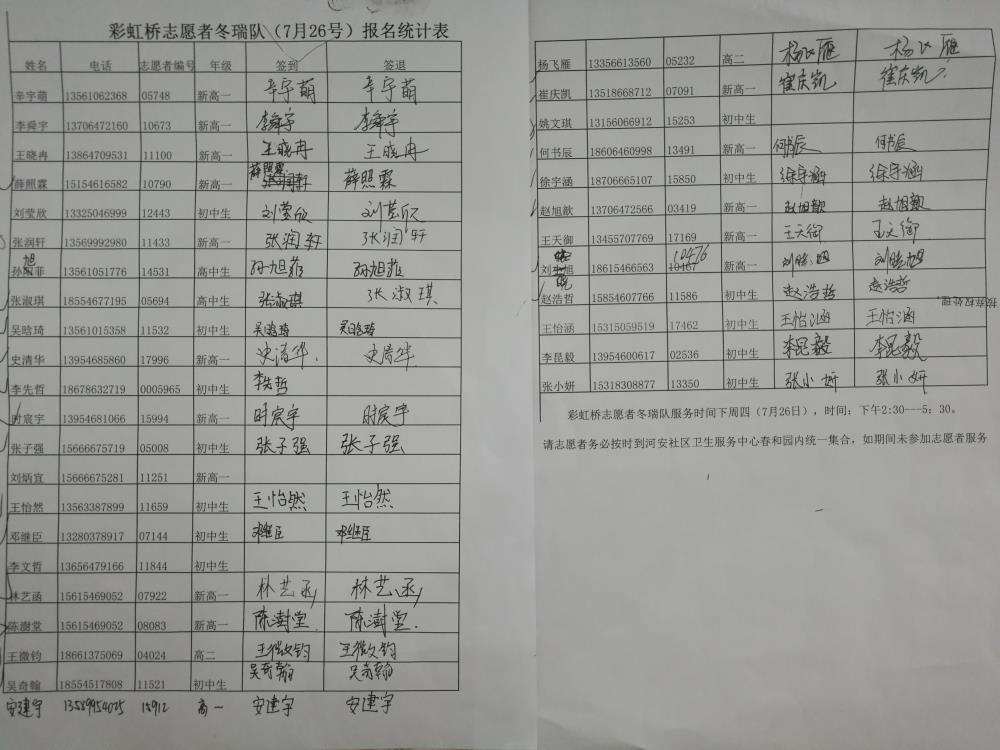 彩虹桥志愿者冬瑞队（7月26号）报名统计表
姓名 电话 志愿者编号 年级 签到 签退
辛宇萌 13561062368 05748 新高一 辛宇萌 辛宇萌
李舜宇 13706472160 10673 新高一 李舜宇 李舜宇
王晓冉 13864709531 11100 新高一 王晓冉 王晓冉
薛照霖 15154616582 10790 新高一 薛照霖 薛照霖
刘莹欣 13325046999 12443 初中生 刘莹欣 刘莹欣
张润轩 13569992980 11433 新高一 张润轩 张润轩
孙旭菲 13561051776 14531 高中生 孙旭菲 孙旭菲
张淑琪 18554677195 05694 高中生 张淑琪 张淑琪
吴晗琦 13561015358 11532 初中生 吴晗琦 吴晗琦
史清华 13954685860 17996 新高一 史清华. 史清华
李先哲 18678632719 0005965 初中生 李先哲
时宸宇 13954681066 15994 新高一 时宸宇 时宸宇
张子强 15666675719 05008 初中生 张子强 张子强
刘炳宜 15666675281 11251 新高一
王怡然 13563387899 11659 初中生 王怡然 王怡然
邓继臣 13280378917 07144 初中生 邓继臣 邓继臣
李文哲 13656479166 11844 初中生
林艺函 15615469052 07922 新高一 林艺函 林艺函
陈澍堂 15615469052 08083 新高一 陈澍堂. 陈澍堂.
王微钧 18661375069 04024 高二 王微钧 王微钧
吴奇翰 18554517808 11521 初中生 吴奇翰 吴奇翰
安建宇 13589954025 15912 高一 安建宇 安建宇
杨飞雁 13356613560 05232 高二 杨飞雁 杨飞雁
崔庆凯 13518668712 07091 新高一 崔庆凯 崔庆凯
姚文琪 13156066912 15253 初中生
何书辰 18606460998 13491 新高一 何书辰 何书辰
徐宇涵 18706665107 15850 初中生 徐宇涵 徐宇涵
赵旭歆 13706472566 03419 新高一 赵旭歆 赵旭歆
王天御 13455707769 17169 新高一 王天御 王天御
10476
刘晓旭 18615466563 10467 新高一 刘晓旭 刘晓旭
赵浩哲 15854607766 11586 初中生 赵浩哲 赵浩哲
王怡涵 15315059519 17462 初中生 王怡涵 王怡涵
李昆毅 13954600617 02536 初中生 李昆毅 李昆毅
张小妍 15318308877 13350 初中生 张小妍 张小妍
彩虹桥志愿者冬瑞队服务时间下周四（7月26日），时间：下午2:30---5：30。
请志愿者务必按时到河安社区卫生服务中心春和园内统一集合，如期间未参加志愿者服务